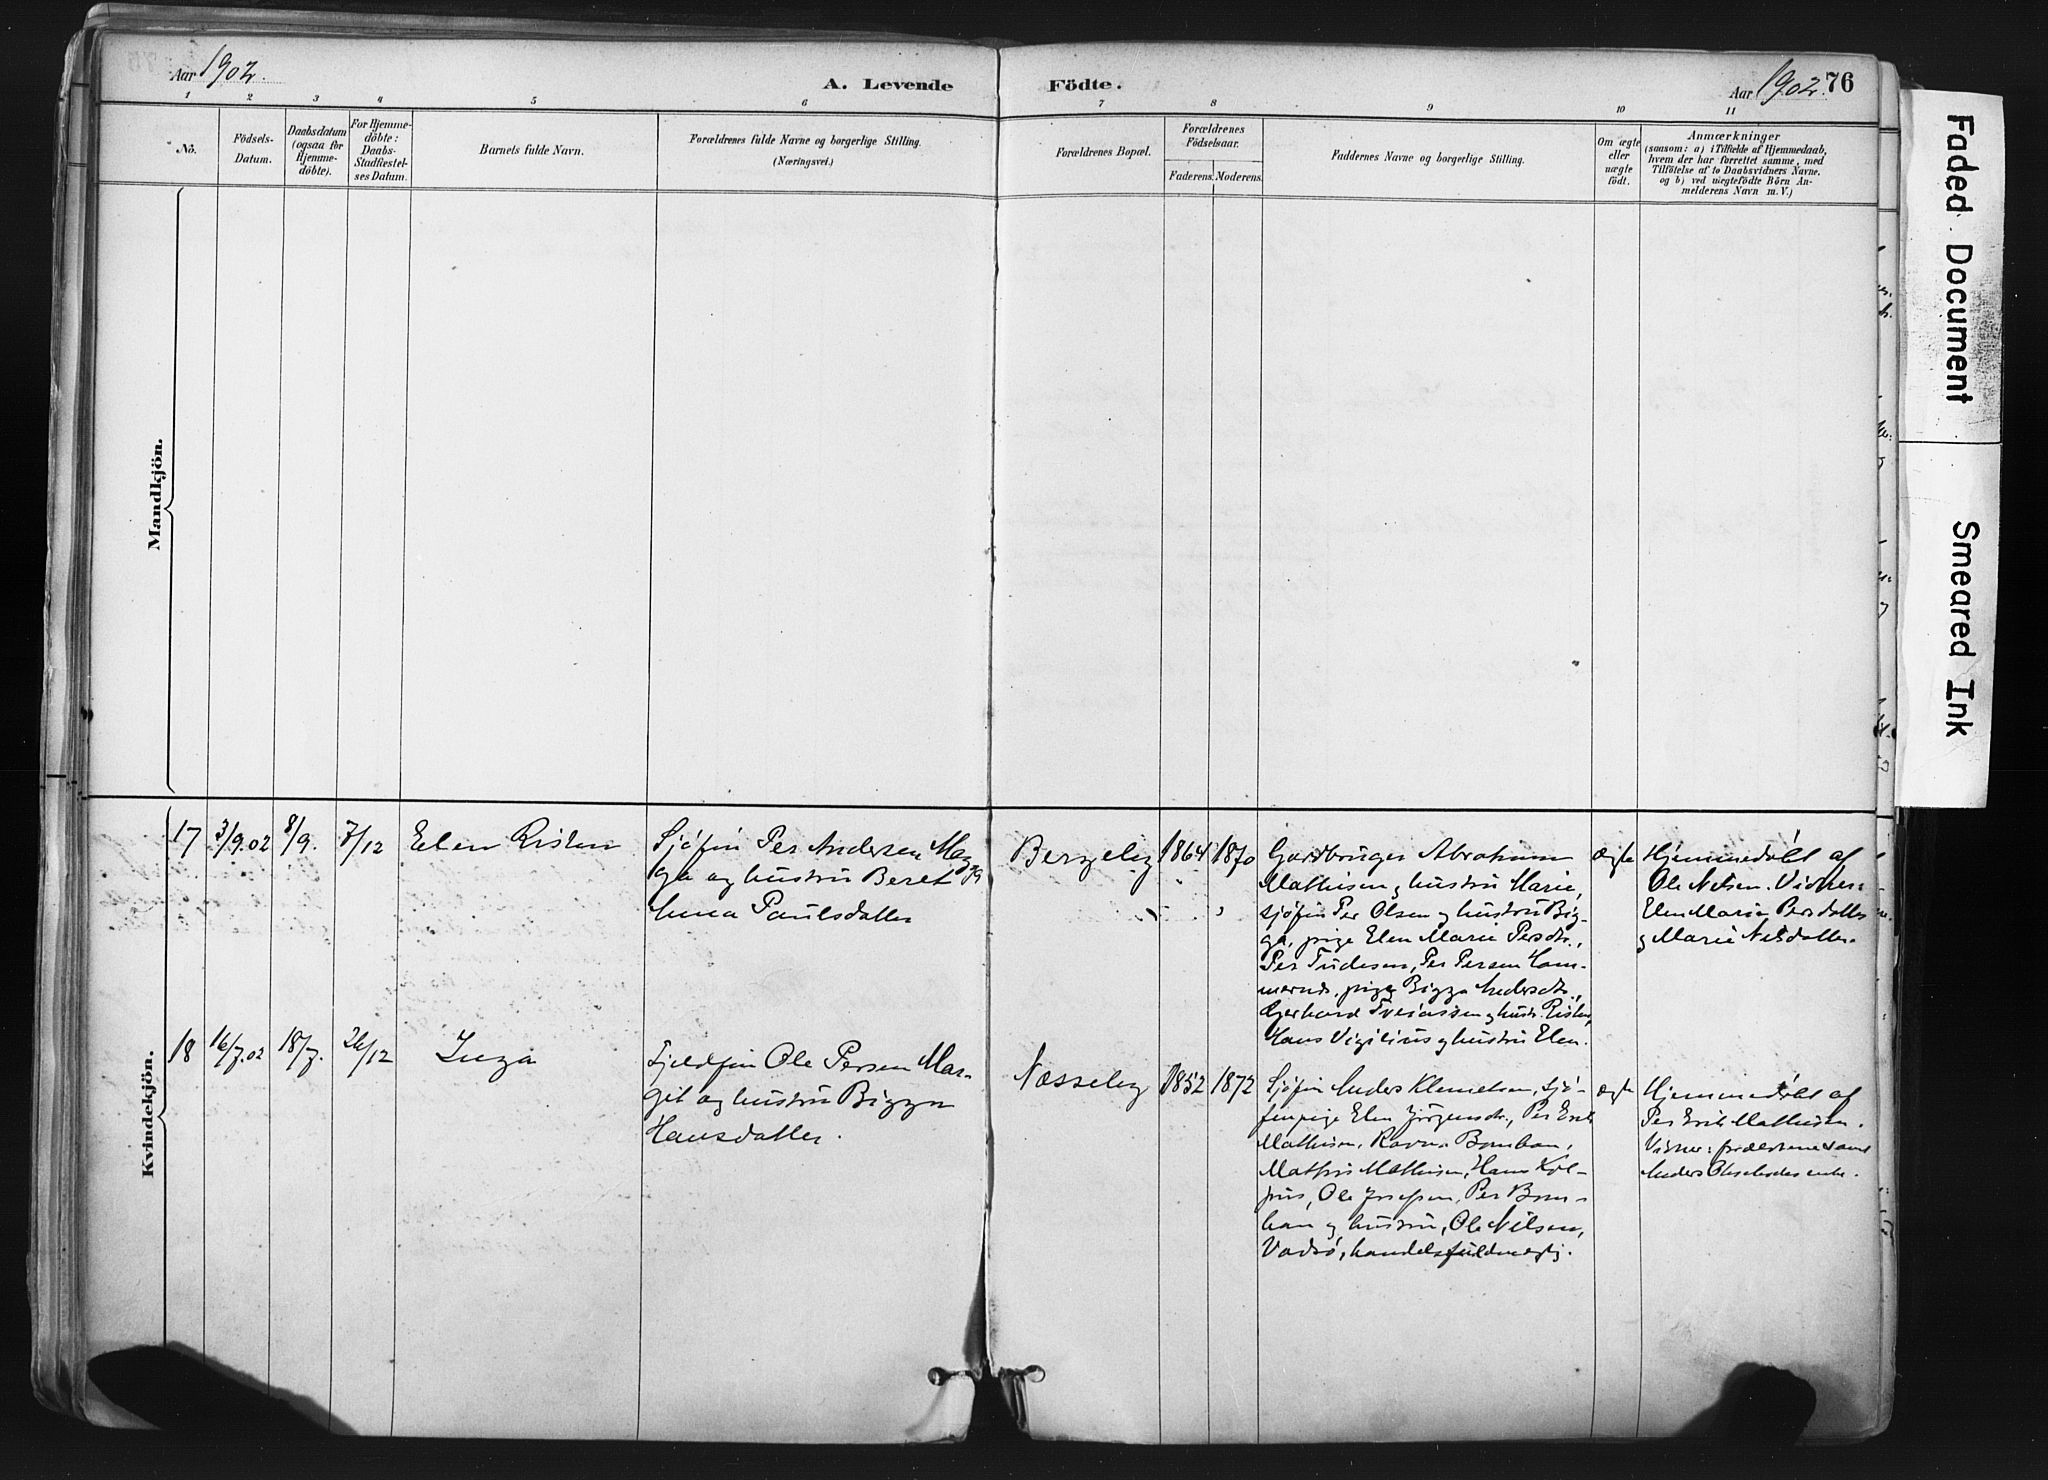 Aar 1902.
A. Levende Födte.
Aar 1902. 76
1 2 3 4 5 6 7 8 9 10 11
No.
Födsels-
Datum.
Daabsdatum
(ogsaa for
Hjemme-
döbte).
For Hjemme-
döbte:
Daabs-
Stadfæstel-
ses Datum.
Barnets fulde Navn.
Forældrenes fulde Navne og borgerlige Stilling.
(Næringsvei.)
Forældrenes Bopæl.
Forældrenes
Födselsaar.
Faderens. Moderens.
Faddernes Navne og borgerlige Stilling.
Om ægte
eller
uægte
født.
Anmærkninger
(saasom: a) i Tilfælde af Hjemmedaab,
hvem der har forrettet samme, med
Tilföielse af to Daabsvidners Navne,
og b) ved uægtefödte Börn An-
melderens Navn m. V.)
Mandkjön.
Kvindekjön.
17 3/9.02 8/9. 7/12 Elen Risten
Sjöfin Per Andersen
og hustru Beret
Anna Paulsdatter
Bergeby 1864 1870
Gardbruger Abraham
Mathisen og hustru Marie,
sjöfin Per Olsen og hustru Big-
ga, pige Elen Marie Persdtr.,
Per Persen Ham-
mernæs, pige Bigga Andersdtr.,
Gerhard og hustr. Risten,
Hans Vigilius og hustru Elen.
ægte
Hjemmedöbt af
Ole Nilsen. Vidner:
Elen Marie Persdatter
og Marie Nilsdatter.
18 16/7.02 18/7. 26/12 Inga
Fjeldfin Ole Persen Mar-
git og hustru Bigga
Hansdatter.
Næsseby 1852 1872
Sjöfin Anders Klemetsen, sjö-
finpige Elen Jörgensdtr., Per Erik
Mathisen, Ravna Bomban,
Mathis Mathisen, Hans
Ole Josefsen, Per Bom-
ban og hustru, Ole Nilsen,
Vadsö, handelsfuldmægtig.
ægte
Hjemmedöbt af
Per Erik Mathisen.
Vidner: forældrene samt
Anders
Faded Document
Smeared Ink